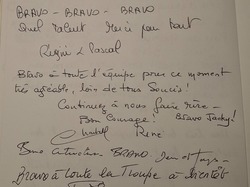 BRAVO - BRAVO - BRAVO
Quel talent Merci pour tout
Régine & Pascal
Bravo à toute l'équipe pour ce moment
très agréable, loin de tous Soucis!
Continuez à nous faire rire -
Bon Courage! Bravo Jacky!
René
BRAVO
Bravo à toute la Troupe à bientôt